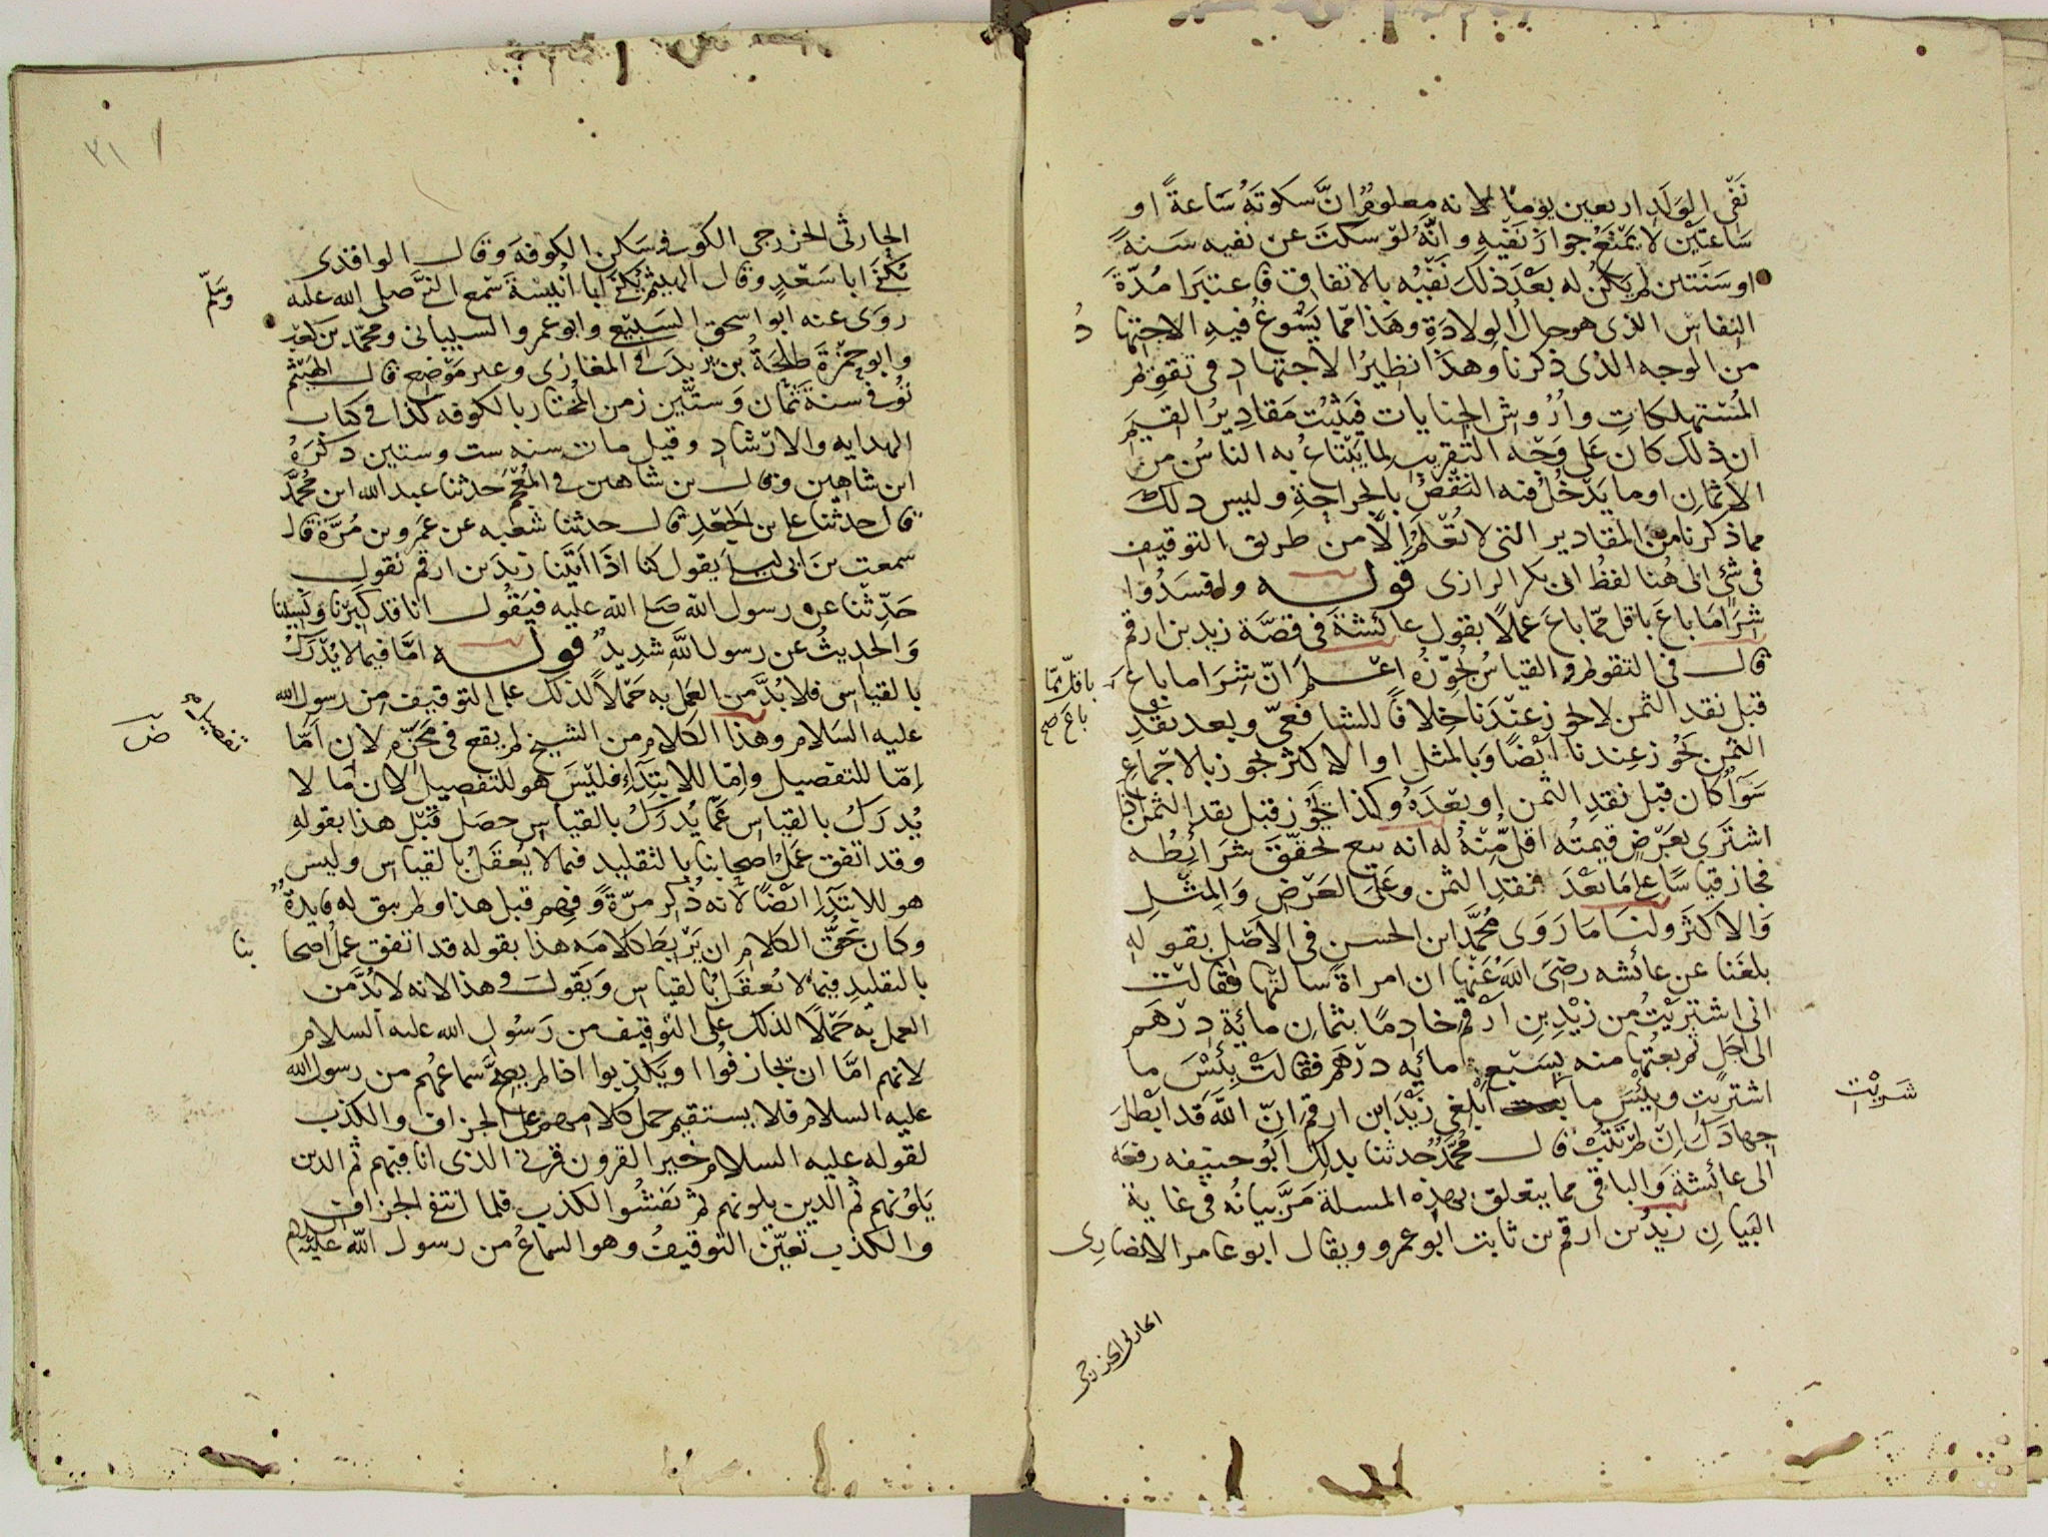 نَفْي الوَلَد اربعين يوما لانه معلومٌ انَّ سكوتَهُ سَاعةً او
سَاعتَيْن لا يَمْنَعُ جوازَ نَفْيِهِ وانَّهُ لَوْ سكتَ عن نفيه سَنةً
او سَنَتين لم يكن له بَعْدَ ذلك نَفْيُه بالاتفاق فاعتبرا مُدّةَ
النفاس الذى هو حال الوِلادَةِ وهَذا ممّا يَسُوغُ فيهِ الاجتهاد
من الوجه الذى ذكرنا وهذا نظيرُ الاجتهادِ فى تقويم
المُسْتهلكاتِ واُرُوش الجنايات فيَثْبُت مَقادِيرُ القيم
ان ذلك كان عَلى وَجْه التقريب لما يَبْتاعُ به الناسُ من
الاثمانِ او ما يَدْخُلُ فيه النَقْصُ بالجراحةِ وليس ذلك
مما ذكرنا من المقادير التى لا تُعْلَمُ اِلّا من طريق التوقيف
فى شئ الى هُنا لفظُ ابى بكر الرازى قوله وافسَدُوا
شِرَاءَ مَا باعَ باقل ممّا باعَ عملًا بقول عائشَةَ فى قصَّة زيد بن ارقم
قال فى التقويم والقياسُ يُجوّزُه اعْلم اَنّ شِرَا ما باع
باقلّ ممّا
باع صح
قبل نقد الثمن لا يجوز عِنْدَنا خِلافًا للشافعىّ وبعد نقْدِ
الثمن يَجُوز عِندنا ايْضًا وَبالمثل او الاكثر يجوز بالاجْماعِ
سَوَاءٌ كان قبل نقدِ الثَمن او بعْدَهُ وكذا يجُوز قبل نقد الثمن اذا
اشتَرَى بعَرْضٍ قيمتُه اقلّ مِنْهُ له انه بيع تحقّقَ شَرَائِطُه
فجاز قياسًا على مَا بَعْدَ نقدِ الثمن وعَلى العَرْض وَالمِثْلِ
وَالاكثَر ولنَا مَا رَوَى مُحمَّد ابن الحسن فى الاَصْل بقولهِ
بلغَنا عن عائشه رضىَ اللهُ عَنْها ان امراةً سالتْها فقالت
انى اشتريْتُ من زيْدِ بنِ ارْقم خادِمًا بثمانِ مائةِ دِرْهَم
الى اجَلٍ ثم بعتُها منه بِسَبْعِ مائه درهَم فقالتْ بِئْسَ ما
شَرَيْت
اشتريت وبِئْسَ ما اَبْلغى زيْدَ ابن ارقم انّ اللهَ قد ابْطلَ
جهادَك اِنْ لم تَتُبْ قال مُحمَّد حدثنا بذلك اَبُو حنيفه رفعَه
الى عائشة وَالباقى مما يتعلق بهذِه المسلة مَرَّ بيانُه فى غاية
البيانِ زيدُ بن ارقم بن ثابت ابو عمرو ويقال ابو عامر الانصارِى
الحارثى الخزرجى
٣١
الحارثى الخزرجى الكوفى سَكن الكوفةَ وقال الواقدى
يُكنَى ابا سَعْدٍ وقال الهيثم يُكنَى ابا اُنَيْسَةَ سَمع النبَّى صلى الله عليه
وسَلّم
روَى عنه ابو اسحق السَبيعى وابو عمرو السيبانى ومحمّد بن كعب
وابو حَمْزةَ طلحَةُ بن يزيدَ فى المغازى وغير مَوْضِع قال الهيثم
تُوفى سنة ثمان وَستّين زمن المُختار بالكوفه كذا فى كتاب
الهدايه والارْشادِ وقيل مات سنه ست وستين ذكَرَهُ
ابن شاهين وقال بن شاهين فى المُعْجَمِ حَدثنا عبد الله ابن مُحمَّد
قال حدثنا على بن الجَعْدِ قال حدثنا شعبه عن عَمرو بن مُرَّة قال
سمعت بن ابى ليلى يقول كنا اذا اَتَيْنا زيدَ بن ارقم نقول
حَدِّثنا عن رسول الله صلى الله عليه فيقُول انا قد كبِرْنا وَنَسِينا
وَالحَديثُ عن رسول اللهِ شدِيدٌ قوله امَّا فيما لا يُدْرَكُ
بالقياس فلا بُدَّ من العَمل به حَمْلاً لذلك على التوقيف من رسول الله
عليه السَلام وهذا الكَلام من الشيخ لم يقع فى مَحَزّهِ لان اَمَّا
تفصيله
ضَ
اِمّا للتفصيل واِمّا للابتِدَاءِ فليْسَ هو للتفصيل لان مَا لا
يُدرَكُ بالقياس عَمّا يُدرَكُ بالقياسِ حصَل قَبْل هذا بقولهِ
وقد اتفق عَمَلُ اصحابنا بالتقليد فيما لا يُعقَلُ بالقياس وليس
هو للابتدَاءِ ايْضًا لانّه ذُكِر مرّةً وفُهِم قبل هذا ولم يبق له فايدةٌ
وكان حَقُّ الكلامِ ان يَرْبِطَ كلامَه هذا بقوله قد اتفق عملُ اصحابنا
بالتقليدِ فيما لا يُعقَلُ بالقياس وَيَقولَ وهذا لانه لا بُدَّ من
العمل به حَمْلًا لذلك على التوقيف من رَسُول الله عليه السلام
لانهم امَّا ان يجازفُوا او يَكذِبوا اذا لم يصحَّ سَماعُهم من رسول الله
عليه السلام فلا يستقيم حمل كلامهم على الجزاف والكذب
لقوله عليه السلام خير القرون قرنى الذى انا فيهم ثم الذين
يَلوُنَهم ثم الذين يلونهم ثم يَفشُوا الكذب فلما انتفى الجزاف
والكذب تعيّن التوقيفُ وهو السماعُ من رسول الله عليه السلام